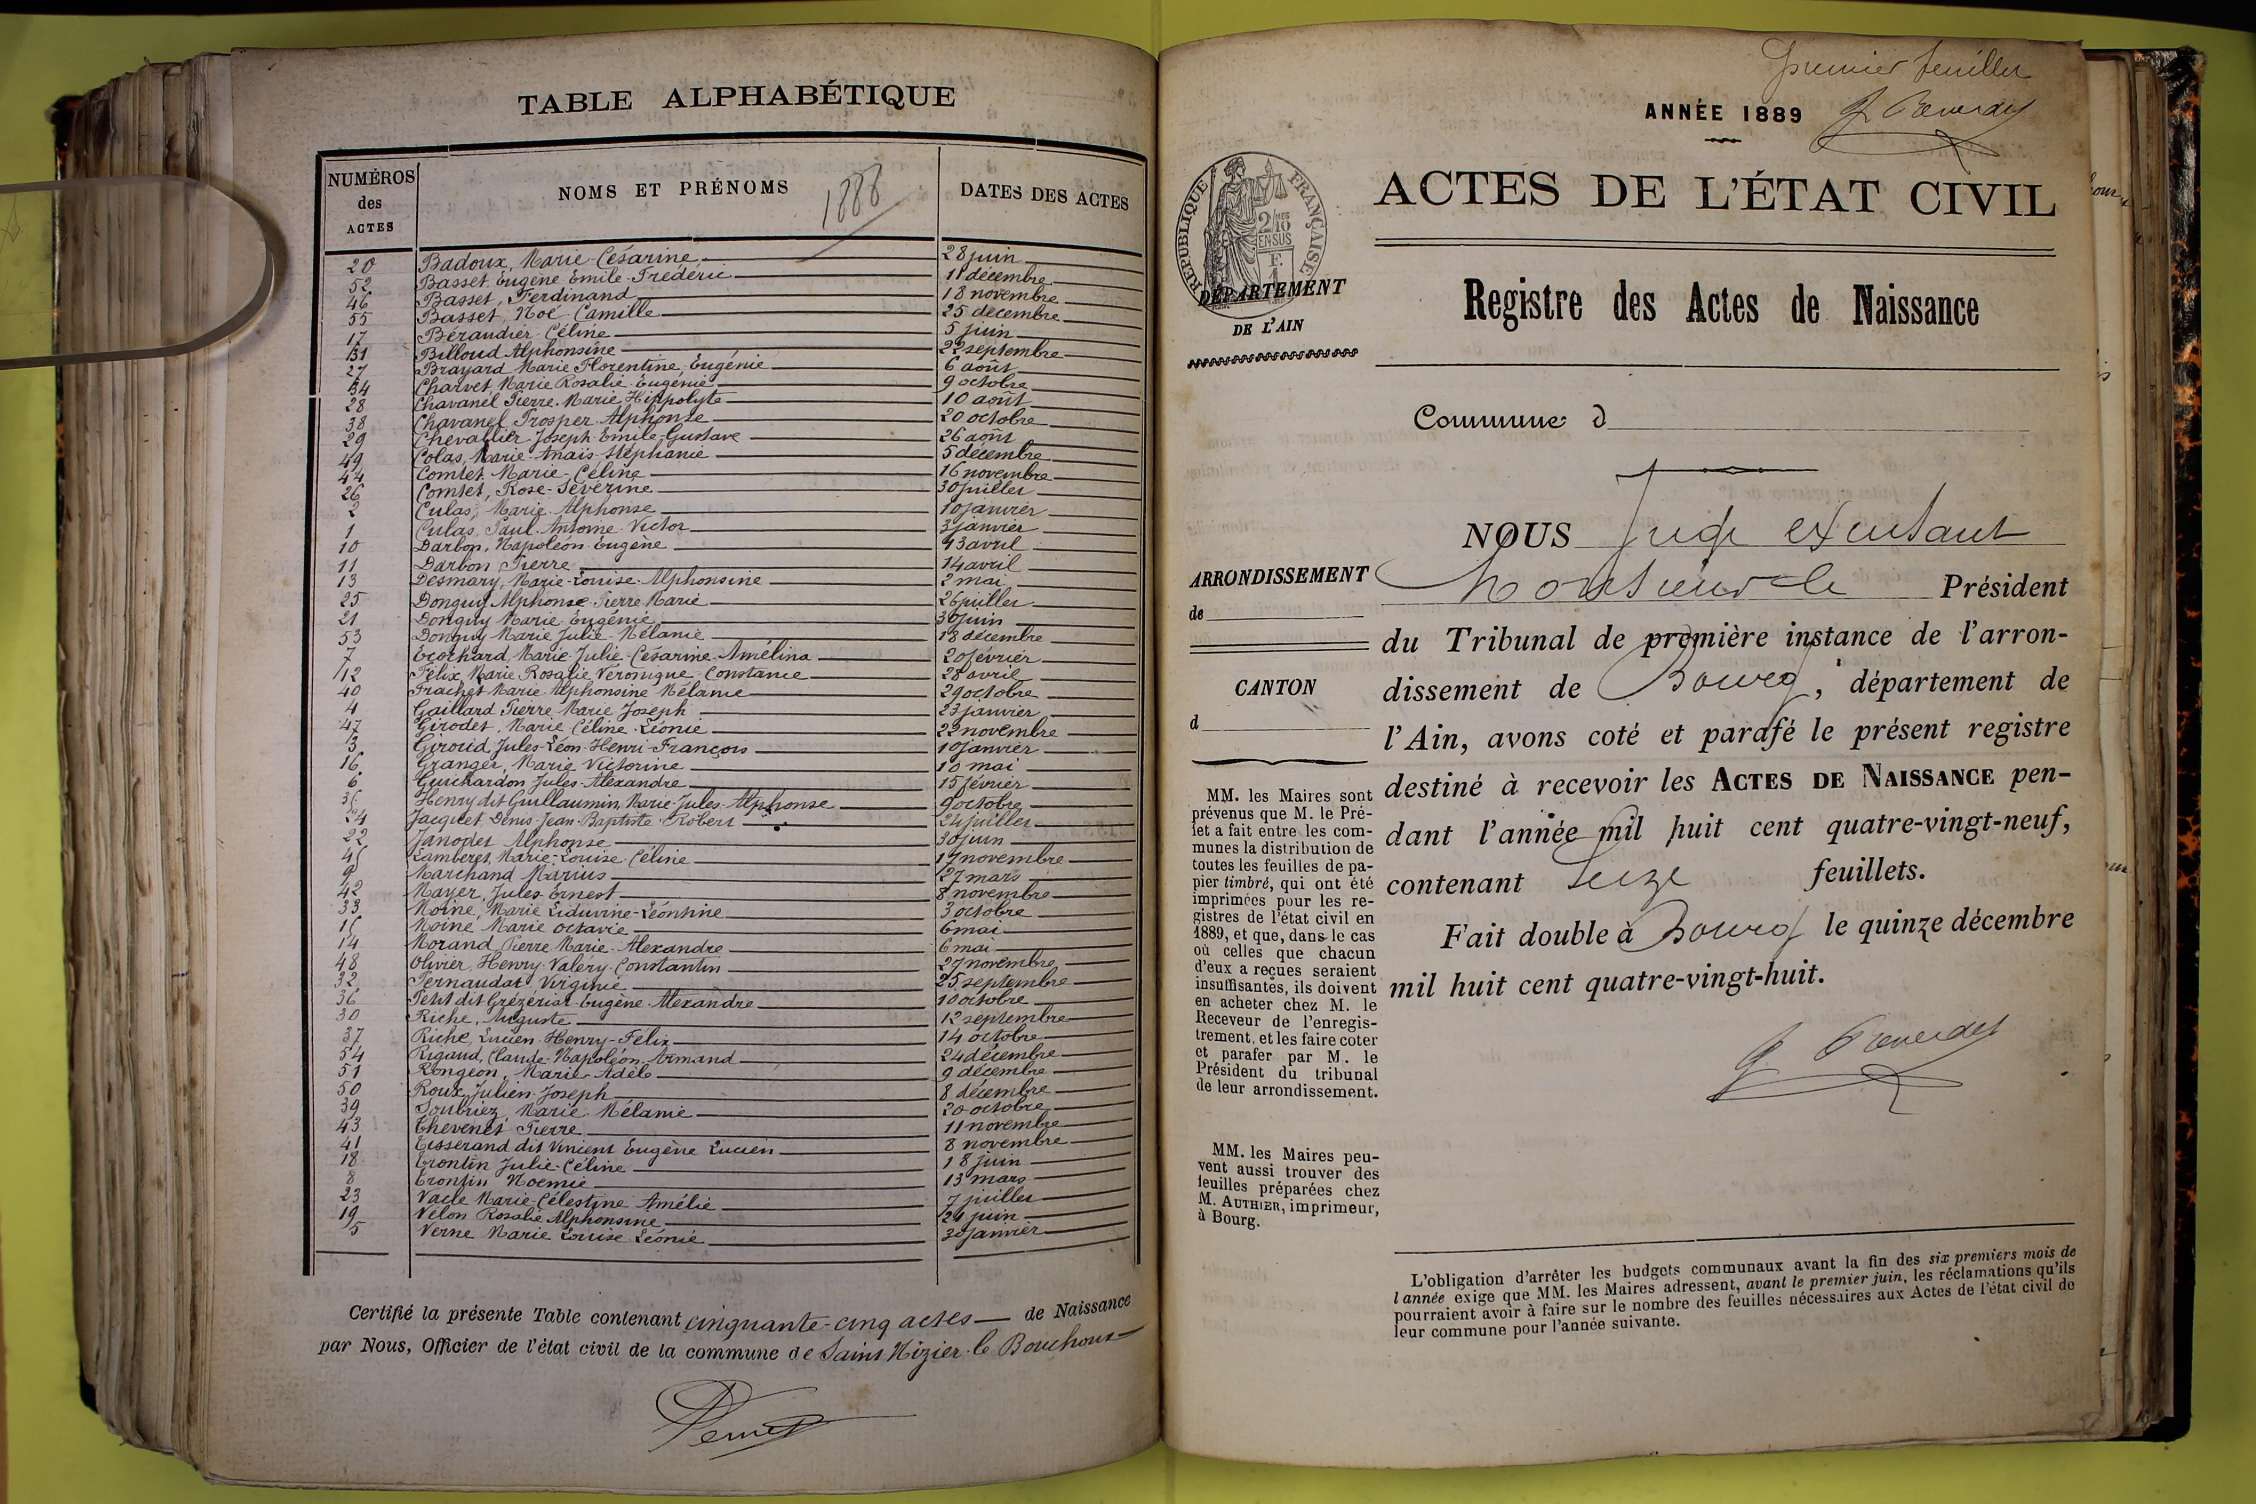 TABLE ALPHABÉTIQUE
NUMÉROS des ACTES
NOMS ET PRÉNOMS 1888
DATES DES ACTES
20 Badoux, Marie-Césarine 28 juin
52 Basset Eugène Emile-Frédéric 11 décembre
46 Basset, Ferdinand 18 novembre
55 Basset, Noé Camille 25 décembre
17 Béraudier Céline 5 juin
31 Billoud Alphonsine 22 septembre
27 Brayard Marie Florentine, Eugénie 6 août
34 Charvet Marie Rosalie-Eugénie 9 octobre
28 Chavanel Pierre-Marie Hippolyte 10 août
38 Chavanel Prosper-Alphonse 20 octobre
29 Chevallier Joseph-Emile-Gustave 26 août
49 Colas, Marie-Anaïs-Stéphanie 5 décembre
44 Comtet Marie-Céline 16 novembre
26 Comtet, Rose-Séverine 30 juillet
2 Culas, Marie-Alphonse 10 janvier
1 Culas, Paul-Antoine-Victor 3 janvier
10 Darbon, Napoléon-Eugène 13 avril
11 Darbon Pierre 14 avril
13 Desmary, Marie-Louise-Alphonsine 2 mai
25 Donguy Alphonse-Pierre Marie 26 juillet
21 Donguy Marie-Eugénie 30 juin
53 Donguy Marie Julie-Mélanie 18 décembre
7 Ecochard, Marie-Julie-Césarine-Amélina 20 février
12 Félix, Marie Rosalie Véronique-Constance 28 avril
40 Frachet Marie Alphonsine Mélanie 29 octobre
4 Gaillard Pierre Marie Joseph 23 janvier
47 Girodet, Marie Céline-Léonie 22 novembre
3 Giroud, Jules-Léon-Henri-François 10 janvier
16 Granger, Marie Victorine 10 mai
6 Guichardon Jules-Alexandre 15 février
35 Henry dit Guillaumin, Marie-Jules-Alphonse 9 octobre
24 Jacquet Denis-Jean-Baptiste-Robert 24 juillet
22 Janodet Alphonse 30 juin
45 Lamberet, Marie-Louise-Céline 17 novembre
9 Marchand Marius 27 mars
42 Mayer, Jules-Ernest 8 novembre
33 Moine, Marie Liduvine-Léontine 3 octobre
15 Moine Marie octavie 6 mai
14 Morand Pierre Marie-Alexandre 6 mai
48 Olivier, Henry-Valéry-Constantin 27 novembre
32 Pernaudat Virginie 25 septembre
36 Petit dit Grézériat-Eugène-Alexandre 10 octobre
30 Riche, Auguste 12 septembre
37 Riche, Lucien-Henry-Félix 14 octobre
54 Rigaud, Claude-Napoléon-Armand 24 décembre
51 Rongeon, Marie-Adèle 9 décembre
50 Roux Julien-Joseph 8 décembre
39 Soubriez, Marie-Mélanie 20 octobre
43 Thevenet Pierre 11 novembre
41 Tisserand dit Vincent Eugène Lucien 8 novembre
18 Trontin Julie-Céline 18 juin
8 Trontin Noémie 13 mars
23 Vacle Marie-Célestine Amélie 7 juillet
19 Velon Rosalie Alphonsine 24 juin
5 Verne Marie Louise Léonie 30 janvier
Certifié la présente Table contenant cinquante-cinq actes de Naissance
par Nous, Officier de l'état civil de la commune de Saint Nizier-le Bouchoux
premier feuillet
ANNÉE 1889
RÉPUBLIQUE FRANÇAISE
2/10 EN SUS
F. 1
ACTES DE L'ÉTAT CIVIL
DÉPARTEMENT
DE L'AIN
Registre des Actes de Naissance
Commune d
NOUS Juge exerçant
Monsieur le Président
ARRONDISSEMENT
de
du Tribunal de première instance de l'arron-
CANTON
d
dissement de Bourg, département de
l'Ain, avons coté et parafé le présent registre
destiné à recevoir les ACTES DE NAISSANCE pen-
dant l'année mil huit cent quatre-vingt-neuf,
contenant Seize feuillets.
Fait double à Bourg le quinze décembre
mil huit cent quatre-vingt-huit.
MM. les Maires sont
prévenus que M. le Pré-
fet a fait entre les com-
munes la distribution de
toutes les feuilles de pa-
pier timbré, qui ont été
imprimées pour les re-
gistres de l'état civil en
1889, et que, dans le cas
où celles que chacun
d'eux a reçues seraient
insuffisantes, ils doivent
en acheter chez M. le
Receveur de l'enregis-
trement, et les faire coter
et parafer par M. le
Président du tribunal
de leur arrondissement.
MM. les Maires peu-
vent aussi trouver des
feuilles préparées chez
M. AUTHIER, imprimeur,
à Bourg.
L'obligation d'arrêter les budgets communaux avant la fin des six premiers mois de
l'année exige que MM. les Maires adressent, avant le premier juin, les réclamations qu'ils
pourraient avoir à faire sur le nombre des feuilles nécessaires aux Actes de l'état civil de
leur commune pour l'année suivante.